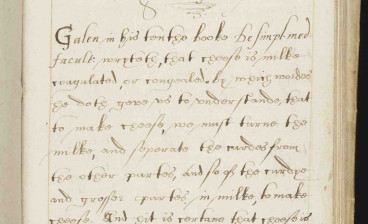 Galen, in his tenthe booke De simpl: med:
facult: wryteth, that cheese is milke
coagulated, or congealed. by which wordes
he doth geve us to understande, that
to make cheese, we must turne the
milke, and seperate the curdes from
the other partes, and so of the curdye
and grosser partes, in milke, to make
cheese. And yit is certane that cheese is